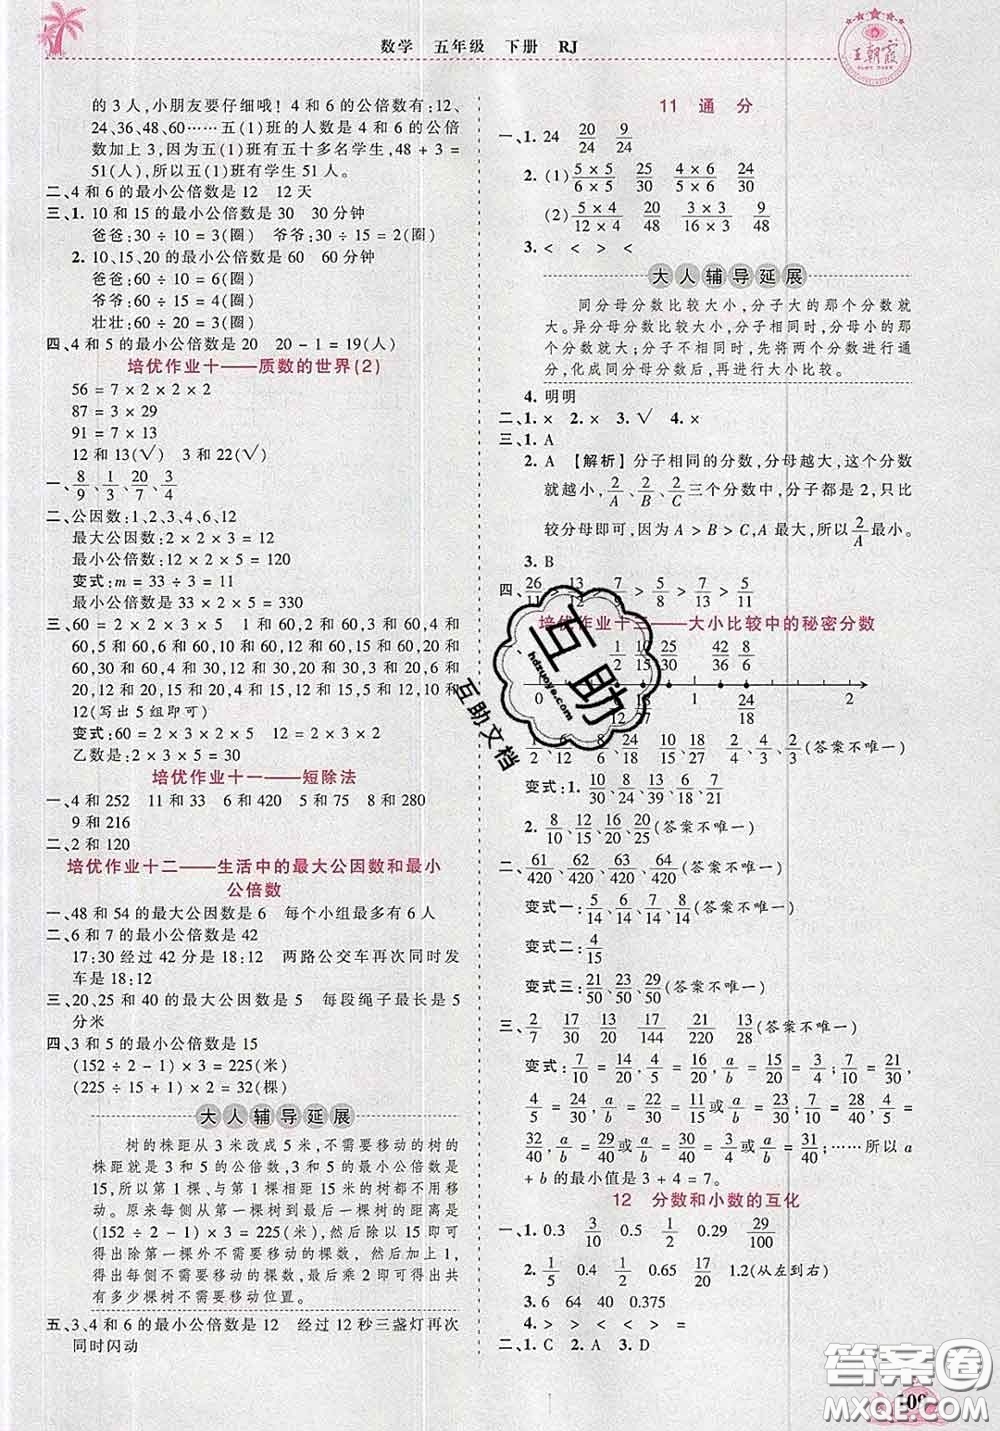 数学 五年级 下册 RJ
王朝霞
的3人,小朋友要仔细哦!4和6的公倍数有:12、
24、36、48、60……五(1)班的人数是4和6的公倍
数加上3,因为五(1)班有五十多名学生,48+3=
51(人),所以五(1)班有学生51人。
二、4和6的最小公倍数是12 12天
三、1. 10和15的最小公倍数是30 30分钟
爸爸:30÷10=3(圈) 爷爷:30÷15=2(圈)
2. 10、15、20的最小公倍数是60 60分钟
爸爸:60÷10=6(圈)
爷爷:60÷15=4(圈)
壮壮:60÷20=3(圈)
四、4和5的最小公倍数是20 20-1=19(人)
培优作业十——质数的世界(2)
56=7×2×2×2
87=3×29
91=7×13
12和13(√) 3和25(√)
一、8/9、1/3、20/7、3/4
二、公因数:1、2、3、4、6、12
最大公因数:2×2×3=12
最小公倍数:12×2×5=120
变式:m=33÷3=11
最小公倍数是33×2×5=330
三、60=2×2×3×5 1和60,2和60,3和60,4和
60,5和60,6和60,10和60,12和60,15和60,20和
60,30和60,4和30,12和10,12和15,12和20,12和
30,20和6,20和3,20和12,20和15,4和15,60和
12(写出5组即可)
变式:60=2×2×3×5 12=2×2×3
乙数是:2×3×5=30
培优作业十一——短除法
一、4和252 11和33 6和420 5和75 8和280
9和216
二、2和120
培优作业十二——生活中的最大公因数和最小
公倍数
一、48和54的最大公因数是6 每个小组最多有6人
二、6和7的最小公倍数是42
17:30经过42分是18:12 两路公交车再次同时发
车是18:12
三、20、25和40的最大公因数是5 每段绳子最长是5
分米
四、3和5的最小公倍数是15
(152÷2-1)×3=225(米)
(225÷15+1)×2=32(棵)
大人辅导延展
树的株距从3米改成5米,不需要移动的树的
株距就是3和5的公倍数,3和5的最小公倍数是
15,所以第1棵、与第1棵相距15米的树都不用移
动。原来每侧从第一棵树到最后一棵树的距离是
(152÷2-1)×3=225(米),然后除以15即可
得出除第一棵外不需要移动的棵数,最后加上1,
得出每侧不需要移动的棵数,最后乘2即可得出共
有多少棵树不需要移动位置。
五、3、4和6的最小公倍数是12 经过12秒三盏灯再次
同时闪动
11 通分
一、1. 24 20/24 9/24
2. (1) 5×5/6×5 25/30 4×6/5×6 24/30
(2) 5×4/12×4 20/48 3×3/16×3 9/48
3. < < > <
大人辅导延展
同分母分数比较大小,分子大的那个分数就
大。异分母分数比较大小,分子相同时,分母小的那
个分数就大;分子不相同时,先将两个分数进行通
分,化成同分母分数后,再进行大小比较。
4. 明明
二、1. × 2. × 3. √ 4. ×
三、1. A
2. A 【解析】分子相同的分数,分母越大,这个分数
就越小,2/A、2/B、2/C三个分数中,分子都是2,只比
较分母即可,因为A>B>C,A最大,所以2/A最小。
3. B
四、26/11>13/12>7/9>5/8>7/13>5/11
培优作业十三——大小比较中的秘密分数
1/2 10/15 25/36 42/36 8/6
0 1 2
12/18 24/18
一、1/2、6/12、8/23、24/19、10/15、15/18、2/4、4/3、2/3(答案不唯一)
变式:1. 10/30、8/24、6/18、7/21
2. 8/10、12/15、16/20、20/25(答案不唯一)
二、61/420、62/420、63/420、64/420(答案不唯一)
变式一:5/14、6/14、7/14、8/14(答案不唯一)
变式二:4/15
变式三:21/50、23/50、29/50(答案不唯一)
三、2/7 17/30 13/30 17/144 71/220 13/28(答案不唯一)
变式:7/10=14/20,4/5=16/20,a/b=15/20=3/4;7/10=21/30,
4/5=24/30,a/b=22/30=11/15或a/b=23/30;7/10=28/40,4/5=
32/40,a/b=29/40或a/b=30/40=3/4或a/b=31/40;……所以a
+b的最小值是3+4=7。
12 分数和小数的互化
一、1. 0.3 3/10 0.5 1/2 0.29 29/100
2. 1/5 0.4 1/2 0.65 17/20 1.2(从左到右)
3. 6 64 40 0.375
4. > < < > > =
二、1. C 2. A 3. D
109
互助
hdzuoye.com
互助文档
答案圈
MXQE.COM